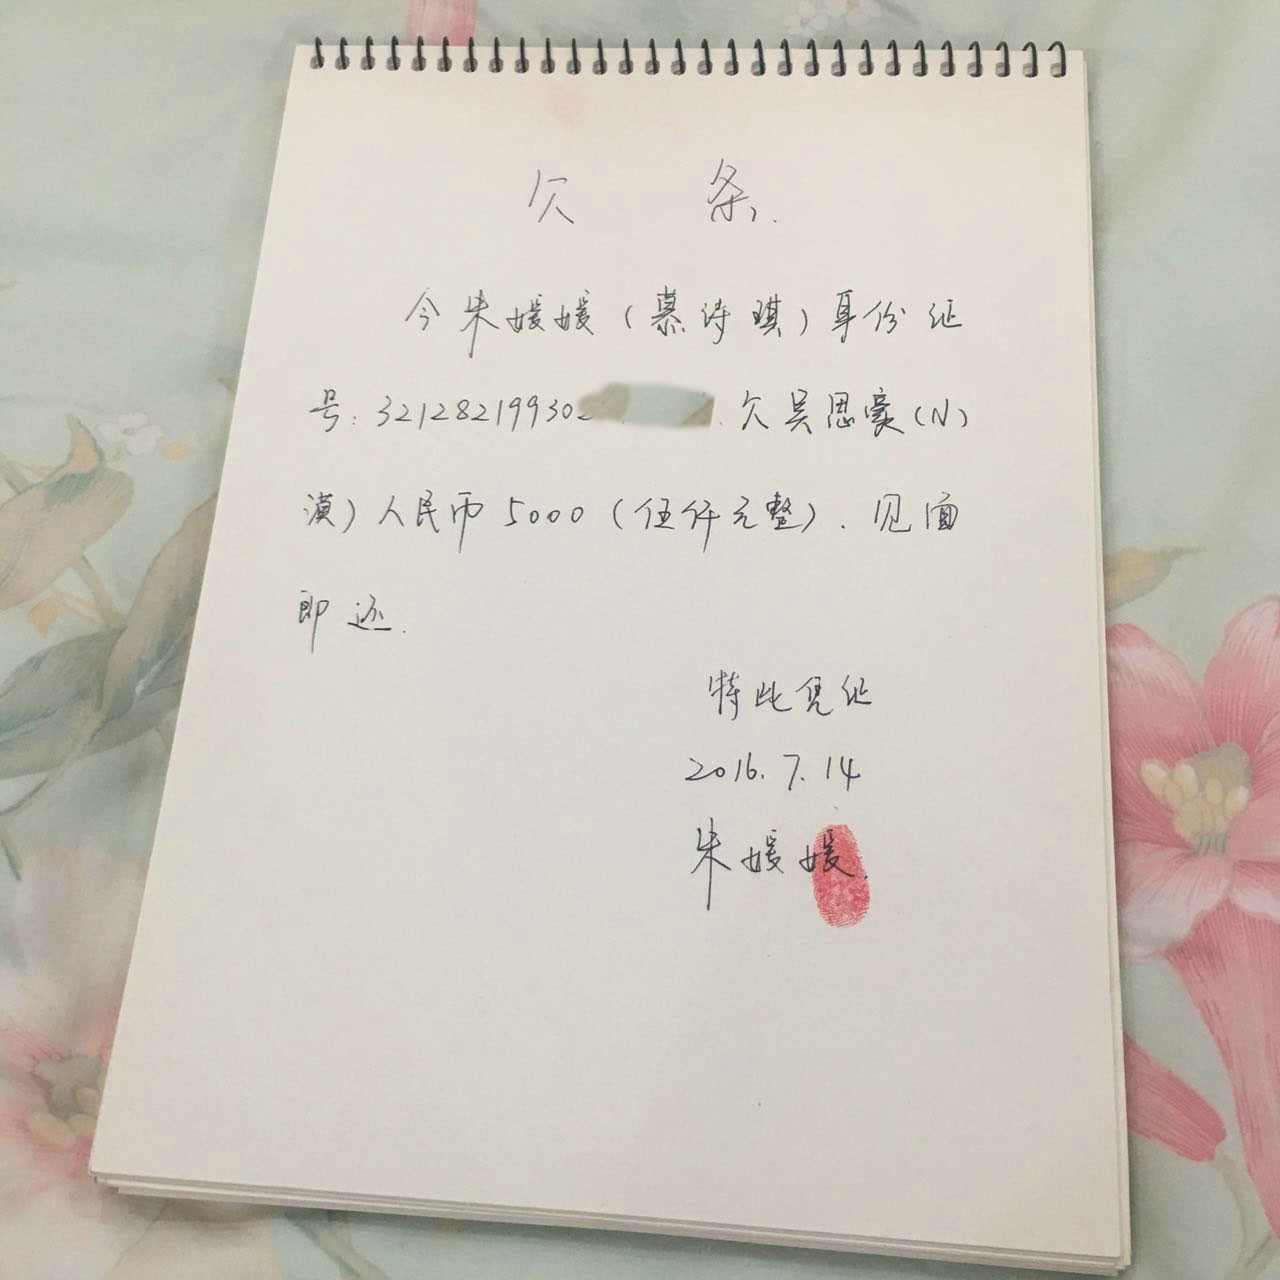 欠 条.
今朱媛媛(慕诗琪)身份证
号:32128219930 欠吴思豪(小
漠)人民币5000(伍仟元整).见面
即还.
特此凭证
2016.7.14
朱媛媛.